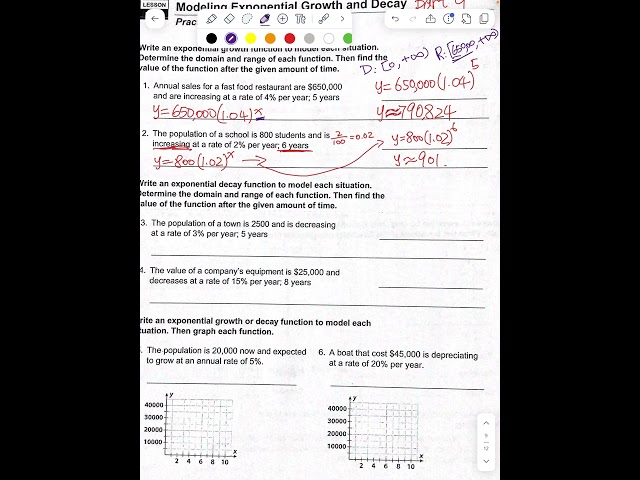 LESSON
Modeling Exponential Growth and Decay
Prac
Write an exponential growth function to model each situation.
Determine the domain and range of each function. Then find the
value of the function after the given amount of time.
D: [0, +∞) R: [650,000, +∞)
1. Annual sales for a fast food restaurant are $650,000
and are increasing at a rate of 4% per year; 5 years
y = 650,000(1.04)^5
y = 650,000(1.04)^x
y ≈ 790,824
2. The population of a school is 800 students and is
increasing at a rate of 2% per year; 6 years
2/100 = 0.02
y = 800(1.02)^6
y = 800(1.02)^x
y ≈ 901.
Write an exponential decay function to model each situation.
Determine the domain and range of each function. Then find the
value of the function after the given amount of time.
3. The population of a town is 2500 and is decreasing
at a rate of 3% per year; 5 years
4. The value of a company's equipment is $25,000 and
decreases at a rate of 15% per year; 8 years
rite an exponential growth or decay function to model each
tuation. Then graph each function.
. The population is 20,000 now and expected
to grow at an annual rate of 5%.
6. A boat that cost $45,000 is depreciating
at a rate of 20% per year.
y
40000
30000
20000
10000
2 4 6 8 10
x
y
40000
30000
20000
10000
2 4 6 8 10
x